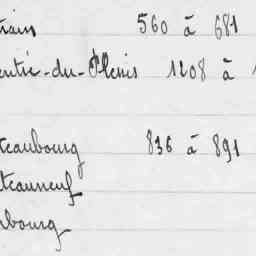 560 à 681
-du-Plessis 1208 à 1
teaubourg 836 à 891
teauneuf
bourg